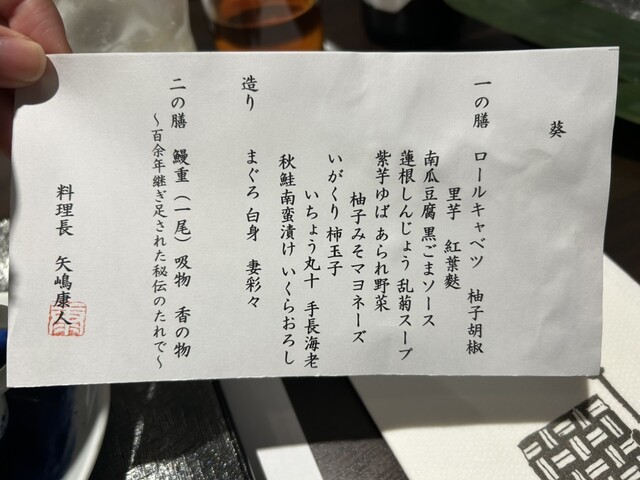 葵
一の膳 ロールキャベツ 柚子胡椒
里芋 紅葉麩
南瓜豆腐 黒ごまソース
蓮根しんじょう 乱菊スープ
紫芋ゆば あられ野菜
柚子みそマヨネーズ
いがぐり 柿玉子
いちょう丸十 手長海老
秋鮭南蛮漬け いくらおろし
造り まぐろ 白身 妻彩々
二の膳 鰻重（一尾） 吸物 香の物
～百余年継ぎ足された秘伝のたれで～
料理長 矢嶋康人